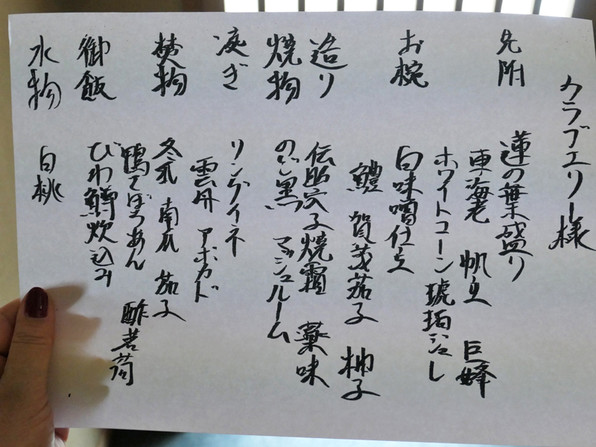 クラブエリー様
先附 蓮の葉盛り
車海老 帆立 巨峰
ホワイトコーン 琥珀ジュレ
お椀 白味噌仕立
鱧 賀茂茄子 柚子
造り 伝助穴子焼霜 薬味
焼物 のど黒 マッシュルーム
凌ぎ リングイネ
雲丹 アボカド
焚物 冬瓜 南瓜 茄子
鴨そぼろあん
御飯 びわ鱒炊込み 酢茗荷
水物 白桃